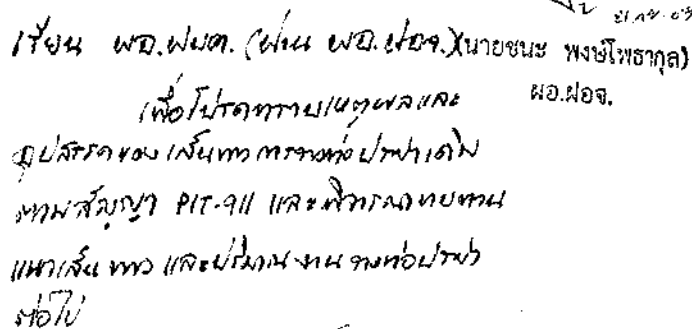 21 กย. 63
เรียน ผอ.ฝบต. (ผ่าน ผอ.ฝอจ.) (นายชนะ พงษ์โพธากุล)
ผอ.ฝอจ.
เพื่อโปรดทราบเหตุผลและ
อุปสรรคของเส้นทางการวางท่อประปาเดิม
ตามสัญญา PIT-911 และพิจารณาทบทวน
แนวเส้นทาง และปริมาณงานวางท่อประปา
ต่อไป